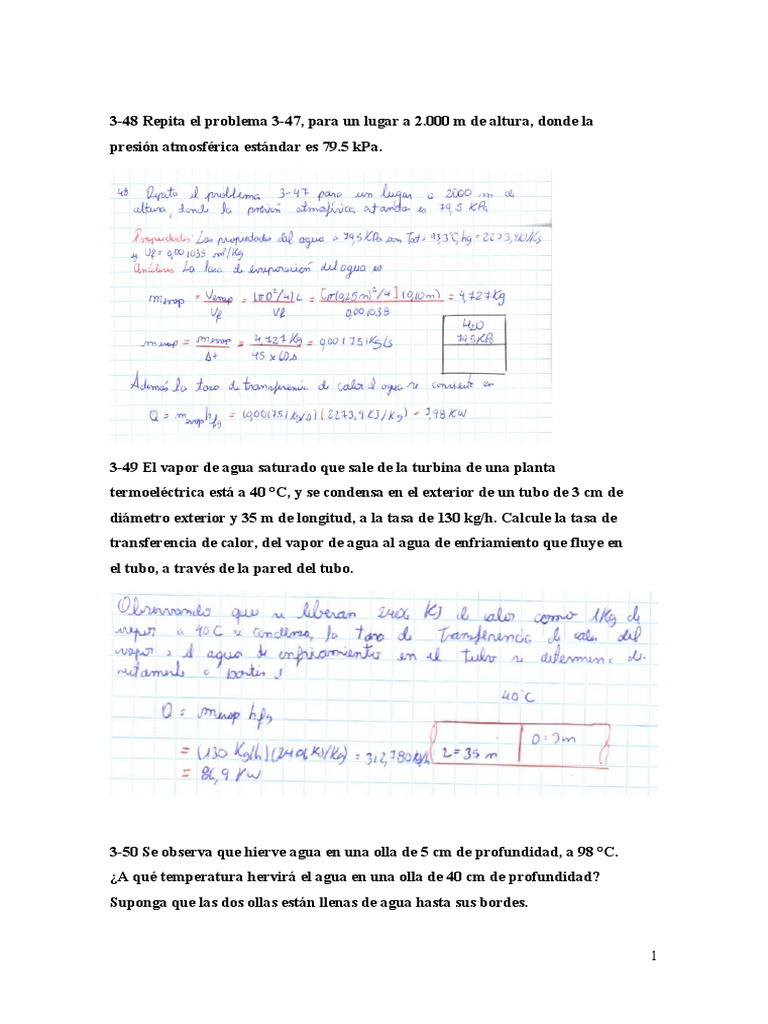 3-48 Repita el problema 3-47, para un lugar a 2.000 m de altura, donde la
presión atmosférica estándar es 79.5 kPa.
48 Repita el problema 3-47 para un lugar a 2000 m de
altura, donde la presión atmosférica estandar es 79,5 KPa
Propiedades: Las propiedades del agua a 79,5KPa son Tsat = 93,3°C, hg = 2273,9KJ/Kg
y Vf = 0,001038 m³/Kg
Análisis La tasa de evaporación del agua es
mevap = Vevap/Vf = (πD²/4)L/Vf = [π(0,25m)²/4](0,10m)/0,001038 = 4,727Kg
H2O
79,5KPa
mevap = mevap/Δt = 4,727Kg/45 x 60s = 0,001751Kg/s
Además la tasa de transferencia de calor al agua se convierte en
Q = mevap hfg = (0,001751Kg/s)(2273,9KJ/Kg) = 3,98 KW
3-49 El vapor de agua saturado que sale de la turbina de una planta
termoeléctrica está a 40 °C, y se condensa en el exterior de un tubo de 3 cm de
diámetro exterior y 35 m de longitud, a la tasa de 130 kg/h. Calcule la tasa de
transferencia de calor, del vapor de agua al agua de enfriamiento que fluye en
el tubo, a través de la pared del tubo.
Observando que se liberan 2406 KJ de calor como 1Kg de
vapor a 40°C se condensa, la tasa de transferencia de calor del
vapor a el agua de enfriamiento en el tubo se determina di-
rectamente a partir
40°C
Q = mevap hfg
= (130 Kg/h)(2406KJ/Kg) = 312,780KJ/h
L = 35 m
D = 3m
= 86,9 KW
3-50 Se observa que hierve agua en una olla de 5 cm de profundidad, a 98 °C.
¿A qué temperatura hervirá el agua en una olla de 40 cm de profundidad?
Suponga que las dos ollas están llenas de agua hasta sus bordes.
1